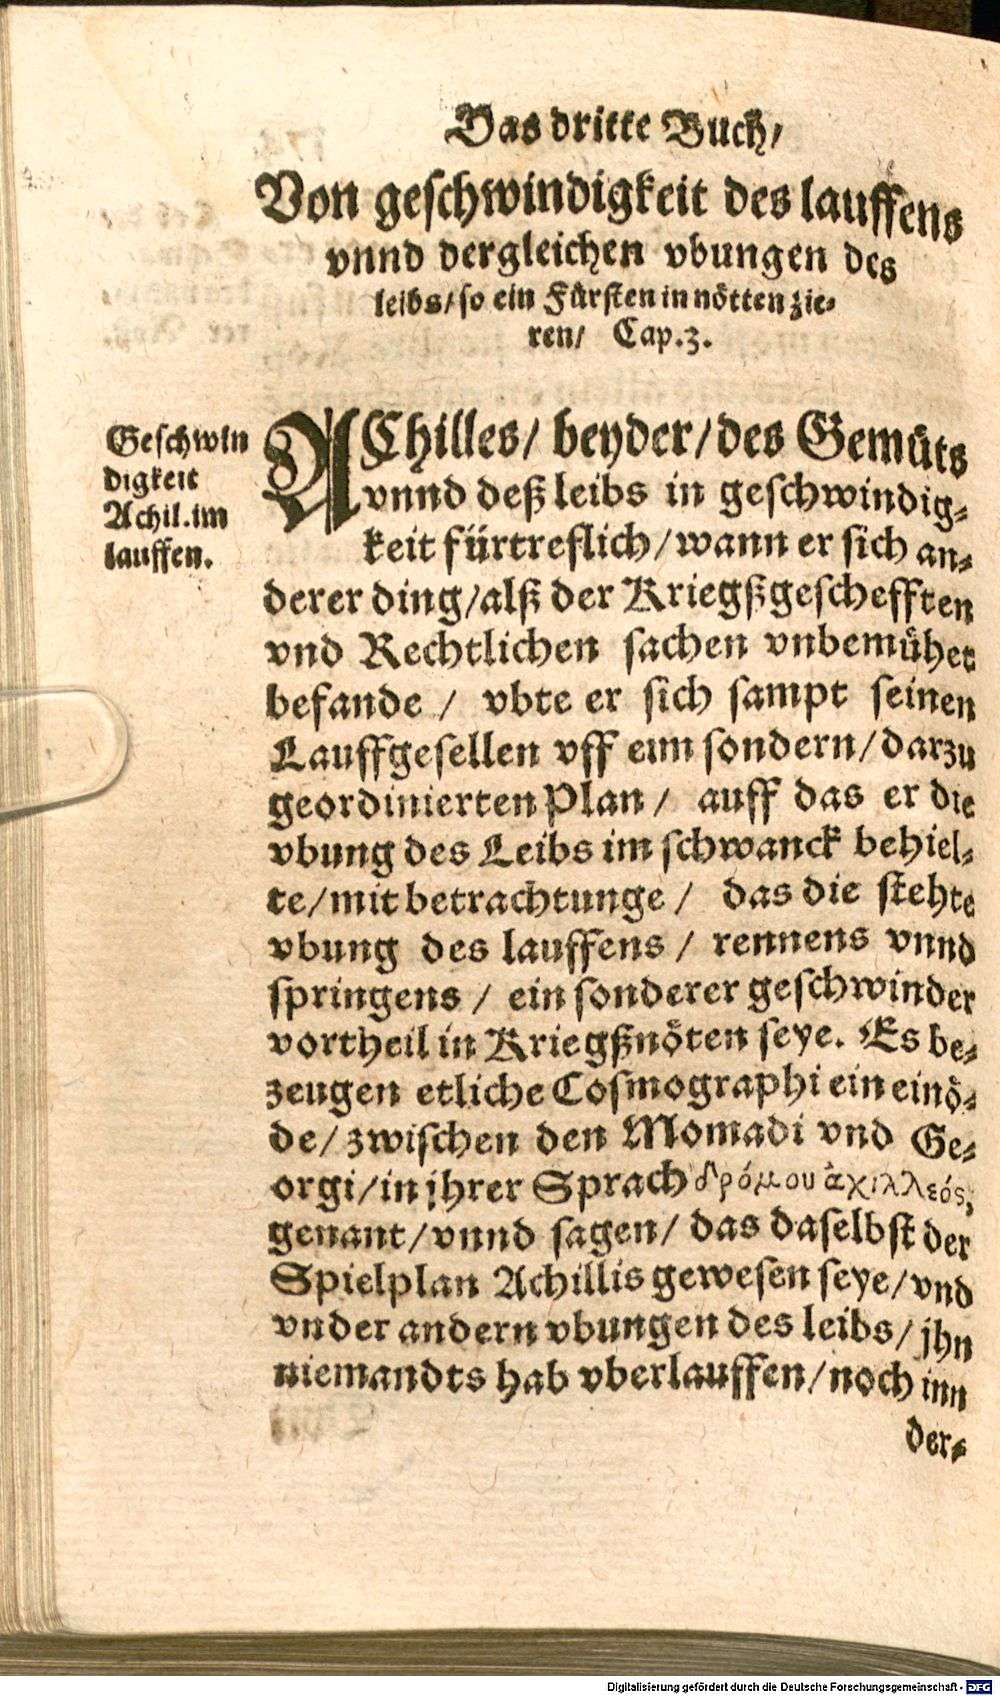 Das dritte Buch/
Von geschwindigkeit des lauffens
vnnd dergleichen vbungen des
leibs/ so ein Fürsten in nötten zie-
ren/ Cap.3.
Geschwin
digkeit
Achil. im
lauffen.
AChilles/ beyder/ des Gemüts
vnnd deß leibs in geschwindig-
keit fürtreflich/ wann er sich an-
derer ding/ alß der Kriegßgeschefften
vnd Rechtlichen sachen vnbemühet
befande / vbte er sich sampt seinen
Lauffgesellen vff eim sondern/ darzu
geordinierten Plan / auff das er die
vbung des Leibs im schwanck behiel-
te/ mit betrachtunge / das die stehte
vbung des lauffens / rennens vnnd
springens / ein sonderer geschwinder
vortheil in Kriegßnöten seye. Es be-
zeugen etliche Cosmographi ein einö-
de/ zwischen den Momadi vnd Ge-
orgi/ in jhrer Sprach δρόμου ἀχιλλεός,
genant/ vnnd sagen/ das daselbst der
Spielplan Achillis gewesen seye/ vnd
vnder andern vbungen des leibs/ jhn
niemandts hab vberlauffen/ noch inn
der-
Digitalisierung gefördert durch die Deutsche Forschungsgemeinschaft - DFG